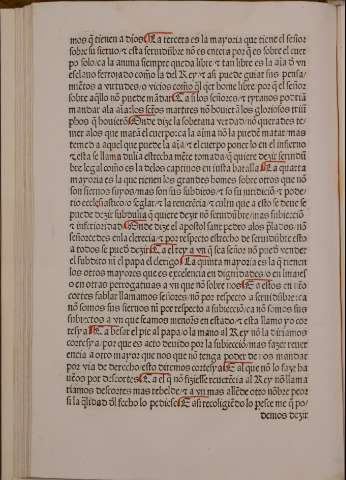 mos q̃ tienen a dios. La tercera es la mayoria que tiene el señor
sobre su sieruo. ⁊ esta seruidũbre nõ es entera por q̃ es sobre el cuer
po solo. ca la anima siempre queda libre ⁊ tan libre es la aĩa
esclauo ferrojado como la del Rey. ⁊ asi puede guiar sus pensa
miẽtos a virtudes o vicios como q̃l q̃er home libre. por q̃ el señor
sobre aq̃llo nõ puede mãdar. Ca si los señores ⁊ tyranos podiã
mandar ala aĩa los sctõs martires nõ houierã los gloriosos triũ
phos q̃ houierõ. Onde dize la soberana verdad. nõ querades te
mer alos que matã el cuerpo. ca la aĩma nõ la puedẽ matar. mas
temed a aquel que puede la aĩa ⁊ el cuerpo poner lo en el infierno
⁊ esta se llama dulia estrecha mẽte tomada. q̃ quiere dezir seruidũ
bre legal como es la delos captiuos en iusta batalla. La quarta
mayoria es la que tienen los grandes homes sobre otros que nõ
son sieruos suyos. mas son sus subditos. ⁊ so su iurdiciõ ⁊ pode
rio ecclesiastico o seglar. ⁊ la reuerẽcia ⁊ cultu que a esto se deue se
puede dezir subdulia. q̃ quiere dezir nõ seruidũbre. mas subiecciõ
⁊ inferioridad. Onde dize el apostol sant pedro alos plados. nõ
señoreedes enla clerezia. ⁊ por respecto estrecho de seruidũbre esto
a todos se puede dezir. Ca el rey a vn q̃ sea señor nõ puede vender
el subdito ni el papa el clerigo. La quinta mayoria es la q̃ tienen
los otros mayores que es excelencia en dignidades o en linages
o en otras perrogatiuas a vn que nõ sobre nos. ⁊ a estos en nr̃o
cortes fablar llamamos señores. nõ por respecto a seruidũbre. ca
nõ somos sus sieruos ni por respecto a subiecciõ. ca nõ somos sus
subiectos. a vn que seamos menores en estado. ⁊ esta llamo yo cor
tesya. La besar el pie al papa o la mano al Rey nõ la diriamos
cortesya. por que es acto deuido por la subiecciõ. mas fazer reuer
encia a otro mayor que nos que nõ tenga poder de nos mandar
por via de derecho. esto diremos cortesya. ⁊ al que nõ lo faze ha
uemos por descortes. Ca el q̃ nõ fiziesse reuerẽcia al Rey nõ llama
riamos descortes mas rebelde. ⁊ a vn mas allẽde otro nõbre peor
si la q̃lidad dl fecho lo pediese. ⁊ asi recoligiẽdo lo pesce me q̃ po
demos dezir